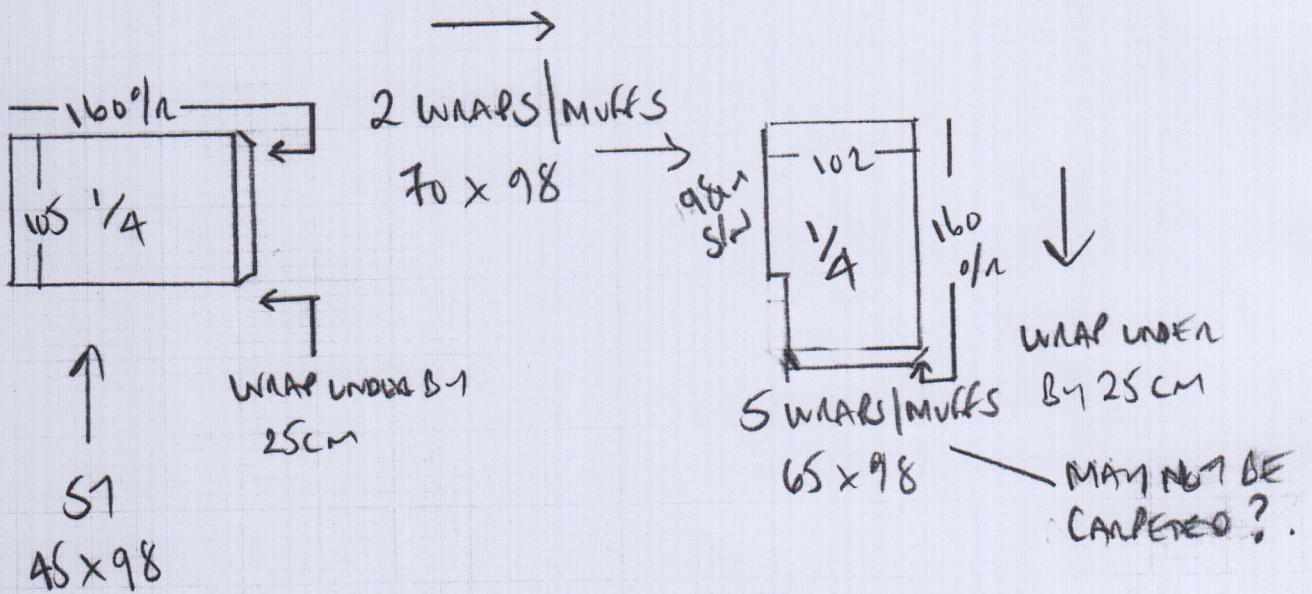 160 o/r
105 1/4
WRAP UNDER BY
25CM
S1
45 x 98
2 WRAPS/MUFFS
70 x 98
102
1/4
160
o/r
WRAP UNDER
BY 25 CM
5 WRAPS/MUFFS
65 x 98
MAY NOT BE
CARPETED ?.